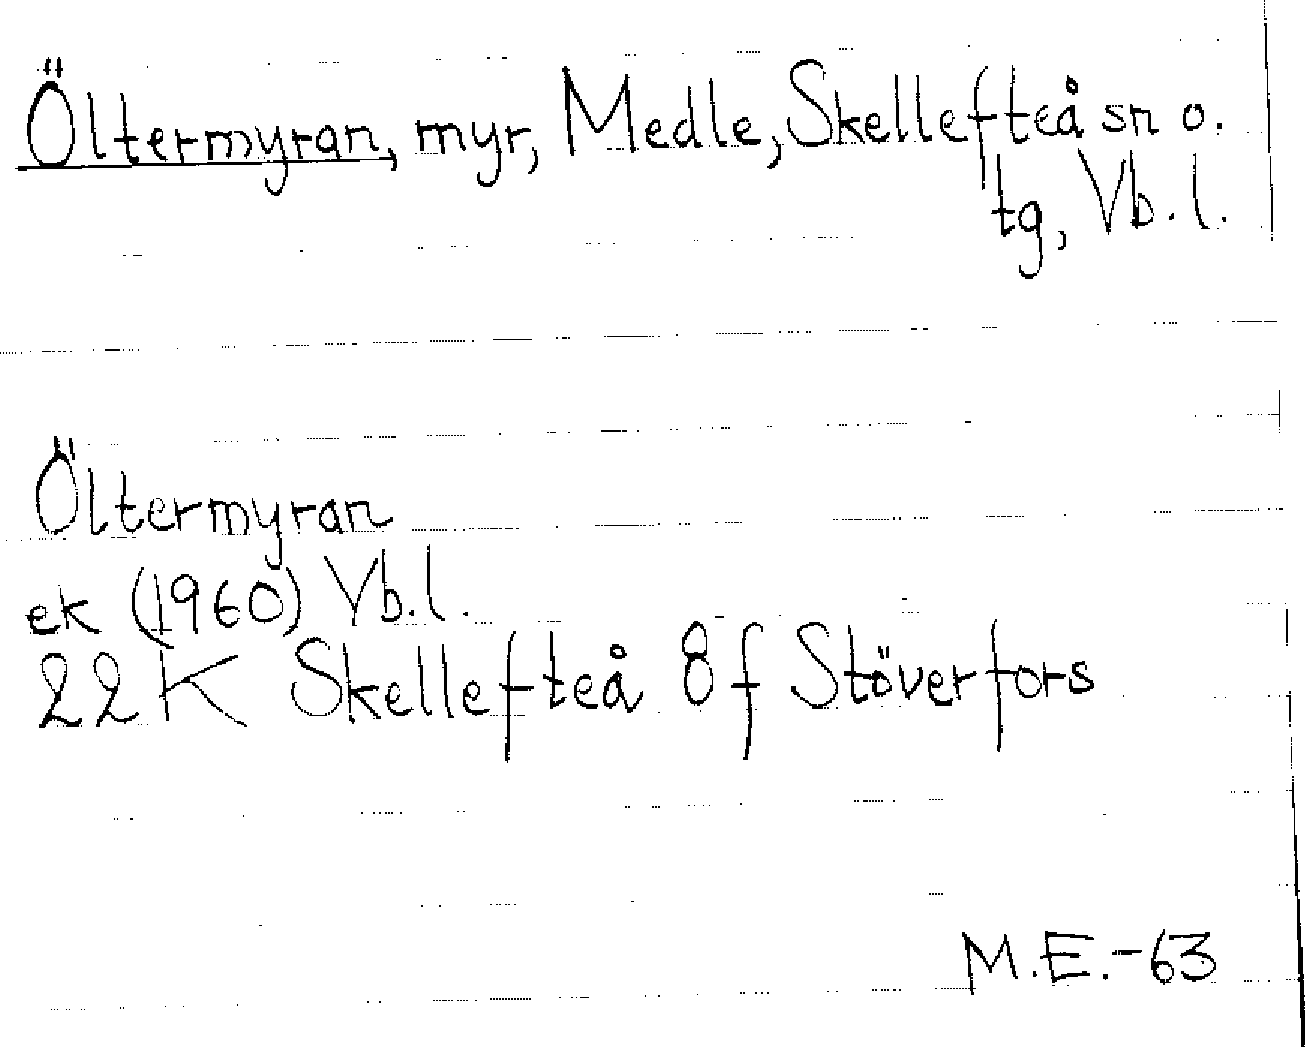 Öltermyran, myr, Medle, Skellefteå sn o.
tg, Vb. l.
Öltermyran
ek (1960) Vb. l.
22K Skellefteå 8f Stöverfors
M.E.-63